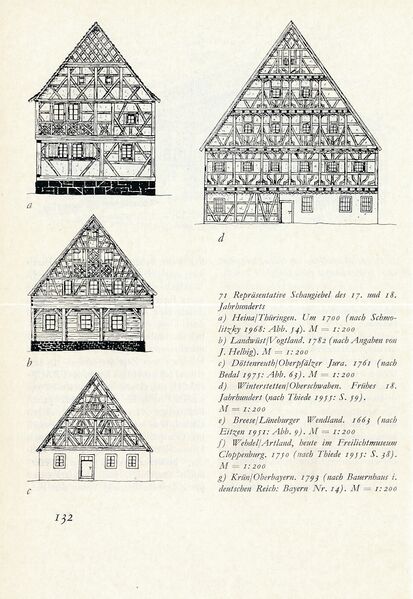 a
d
b
c
71 Repräsentative Schaugiebel des 17. und 18.
Jahrhunderts
a) Heina/Thüringen. Um 1700 (nach Schmo-
litzky 1968: Abb. 54). M = 1:200
b) Landwüst/Vogtland. 1782 (nach Angaben von
J. Helbig). M = 1:200
c) Döttenreuth/Oberpfälzer Jura. 1761 (nach
Bedal 1975: Abb. 63). M = 1:200
d) Winterstetten/Oberschwaben. Frühes 18.
Jahrhundert (nach Thiede 1955: S. 59).
M = 1:200
e) Breese/Lüneburger Wendland. 1663 (nach
Eitzen 1951: Abb. 9). M = 1:200
f) Wehdel/Artland, heute im Freilichtmuseum
Cloppenburg. 1750 (nach Thiede 1955: S. 38).
M = 1:200
g) Krün/Oberbayern. 1793 (nach Bauernhaus i.
deutschen Reich: Bayern Nr. 14). M = 1:200
132